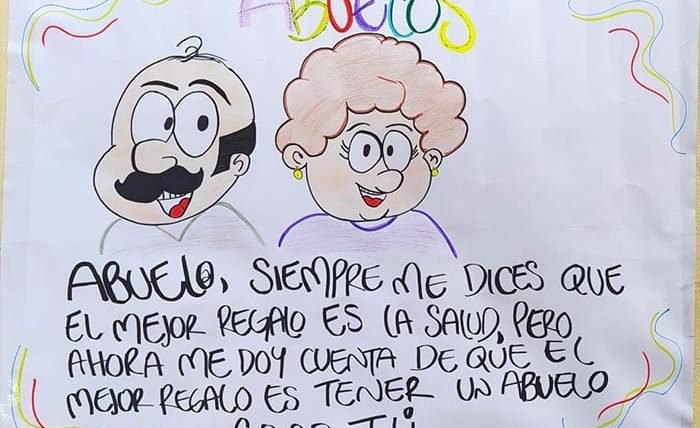 ABUELOS
ABUELO, SIEMPRE ME DICES QUE
EL MEJOR REGALO ES LA SALUD, PERO
AHORA ME DOY CUENTA DE QUE EL
MEJOR REGALO ES TENER UN ABUELO
COMO TÚ